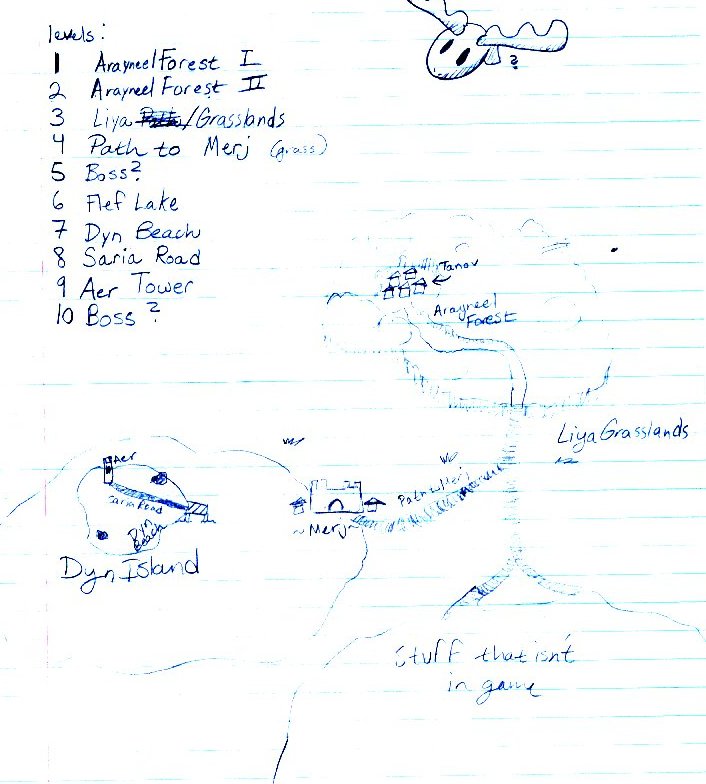 levels:
1 Arayneel Forest I
2 Arayneel Forest II
3 Liya /Grasslands
4 Path to Merj (grass)
5 Boss?
6 Flef Lake
7 Dyn Beach
8 Saria Road
9 Aer Tower
10 Boss?
?
Tanov
Arayneel
Forest
Liya Grasslands
Path to Merj
~Merj~
Aer
Saria Road
Dyn
Beach
Dyn Island
Stuff that isn't
in game